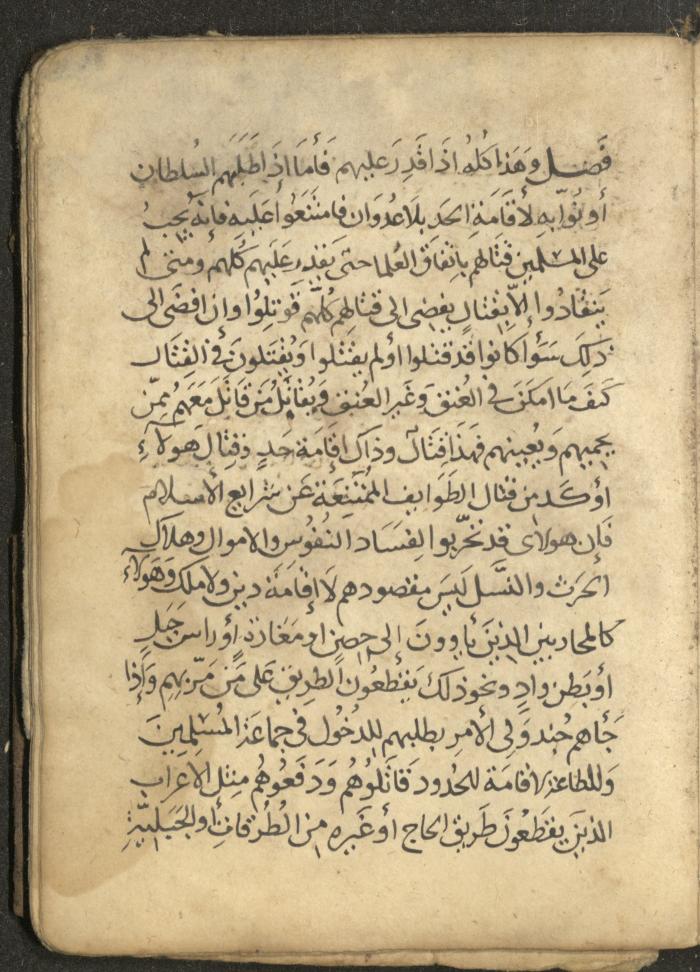 فَصل وَهَذا كُلُّه اذَا قَدِرَ عليهم فَأَمَا اذَا طَلَبَهم السُلطان
أو نُوّابِهِ لأقَامَةِ الحَد بلَا عُدوَان فامتَنَعُوا عَلَيهِ فإنه يجبُ
على المسلمين قتالهم باتِفَاق العُلما حتى يَقدِر عَلَيهم كُلهُم ومتى لم
يَنقَادُوا إلاّ بِقتَالٍ يفضى الى قتالِهِم كُلّهم قوتِلُوا وان افضَى الى
ذلكَ سَوَأ كانوا قد قتلوا أو لم يقتلوا وَيُقتَلونَ في القِتَال
كَيفَ مَا امكَنَ في العُنق وَغَير العُنق وَيُقَاتَلُ مَن قَاتَلَ مَعَهُم مِمّن
يحميهم وَيُعينهم فهَذَا قِتَال وذاكَ إقَامَة حَدٍ وقتال هَولآء
أوكَد من قتال الطَوَايف المُمتَنِعَة عَن شرايع الأسلام
فَإن هولاى قد تحَزّبوا لِفسَاد النُفُوس والاموال وهلاك
الحَرث والنَّسَل لَيسَ مقصودهم لَا إقَامَة دين ولا ملك وَهَولآء
كالمحاربين الذينَ ياوونَ إلى حِصنٍ او مَغارَة أو راس جَبلٍ
أو بَطن وادٍ ونحو ذلك يَقطَعُون الطريق عَلى مَن مَرّ بِهِم وَإذا
جَأهم جُند وَلى الأمرِ بطلبهم للدُخُول في جماعَة المُسلِمِينَ
وَالطاعَة لاقامَة الحُدود قَاتَلُوهُم وَدَفَعُوهُم مِثل الاعرَاب
الذينَ يقطَعُونَ طَريق الحاج أو غَيره من الطُرقَات أو الجَبَلِيّةِ